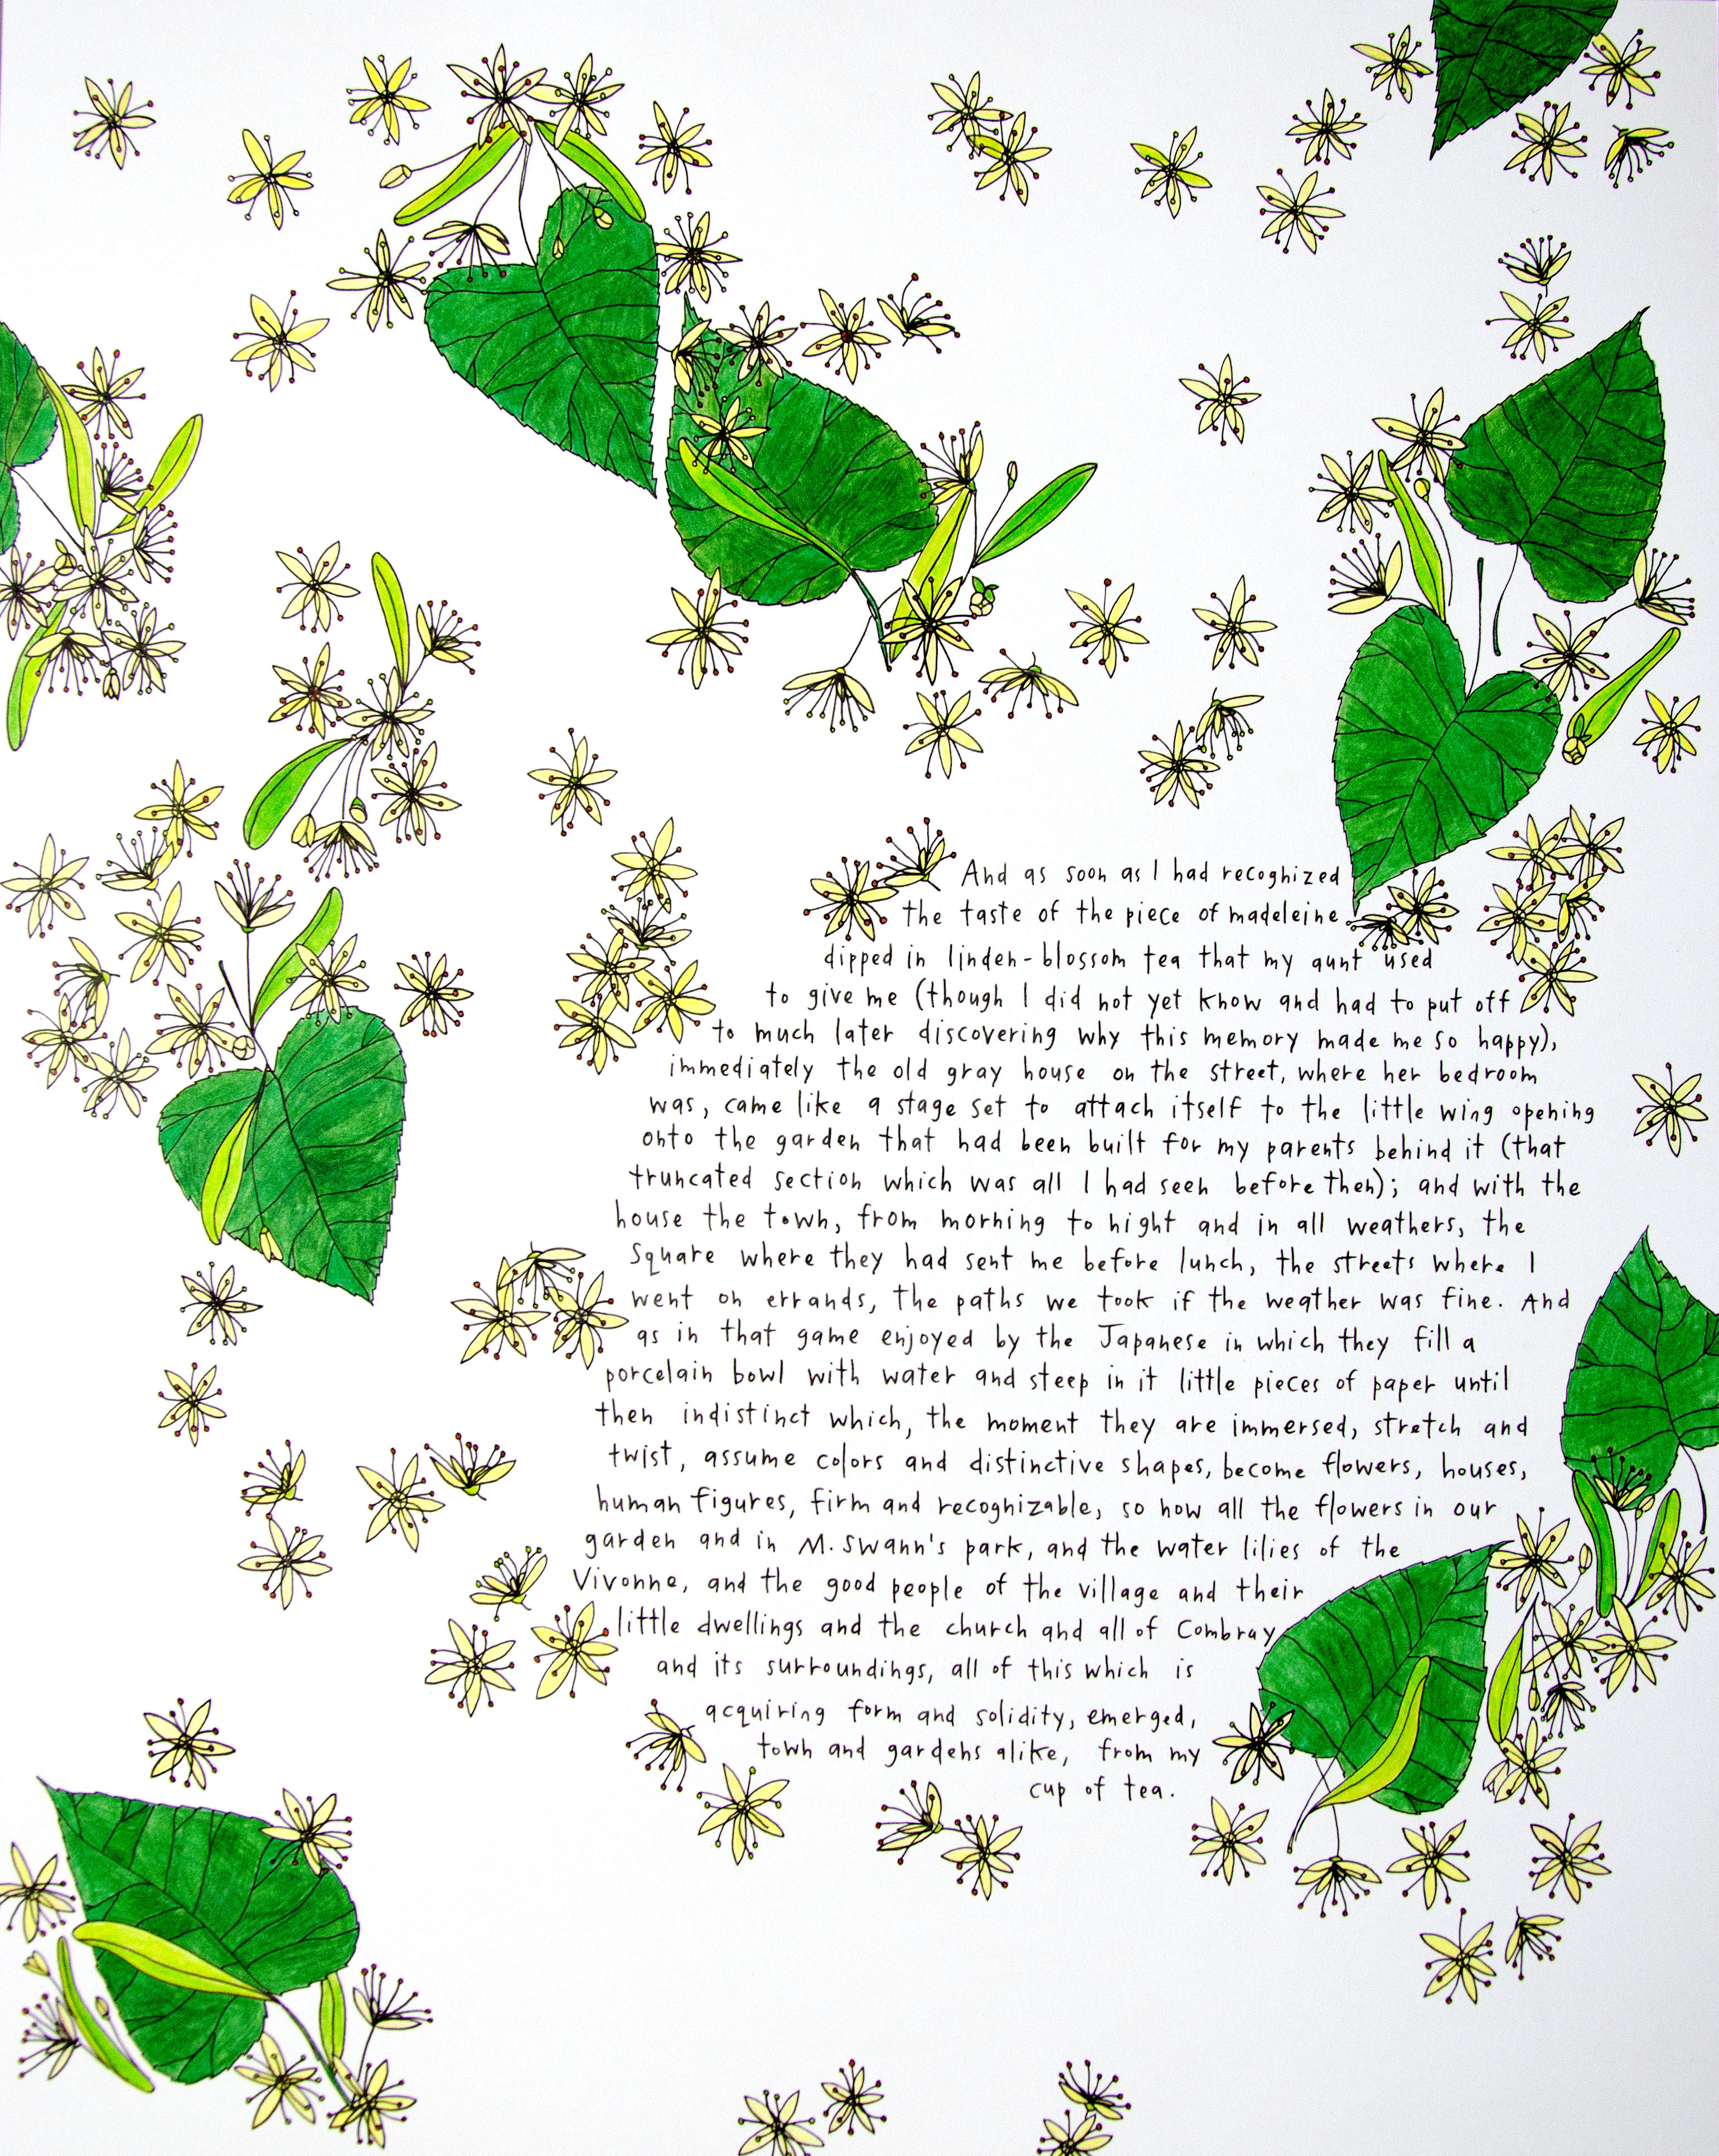 And as soon as I had recognized
the taste of the piece of madeleine
dipped in linden-blossom tea that my aunt used
to give me (though I did not yet know and had to put off
to much later discovering why this memory made me so happy),
immediately the old gray house on the street, where her bedroom
was, came like a stage set to attach itself to the little wing opening
onto the garden that had been built for my parents behind it (that
truncated section which was all I had seen before then); and with the
house the town, from morning to night and in all weathers, the
Square where they had sent me before lunch, the streets where I
went on errands, the paths we took if the weather was fine. And
as in that game enjoyed by the Japanese in which they fill a
porcelain bowl with water and steep in it little pieces of paper until
then indistinct which, the moment they are immersed, stretch and
twist, assume colors and distinctive shapes, become flowers, houses,
human figures, firm and recognizable, so now all the flowers in our
garden and in M. Swann's park, and the water lilies of the
Vivonne, and the good people of the village and their
little dwellings and the church and all of Combray
and its surroundings, all of this which is
acquiring form and solidity, emerged,
town and gardens alike, from my
cup of tea.